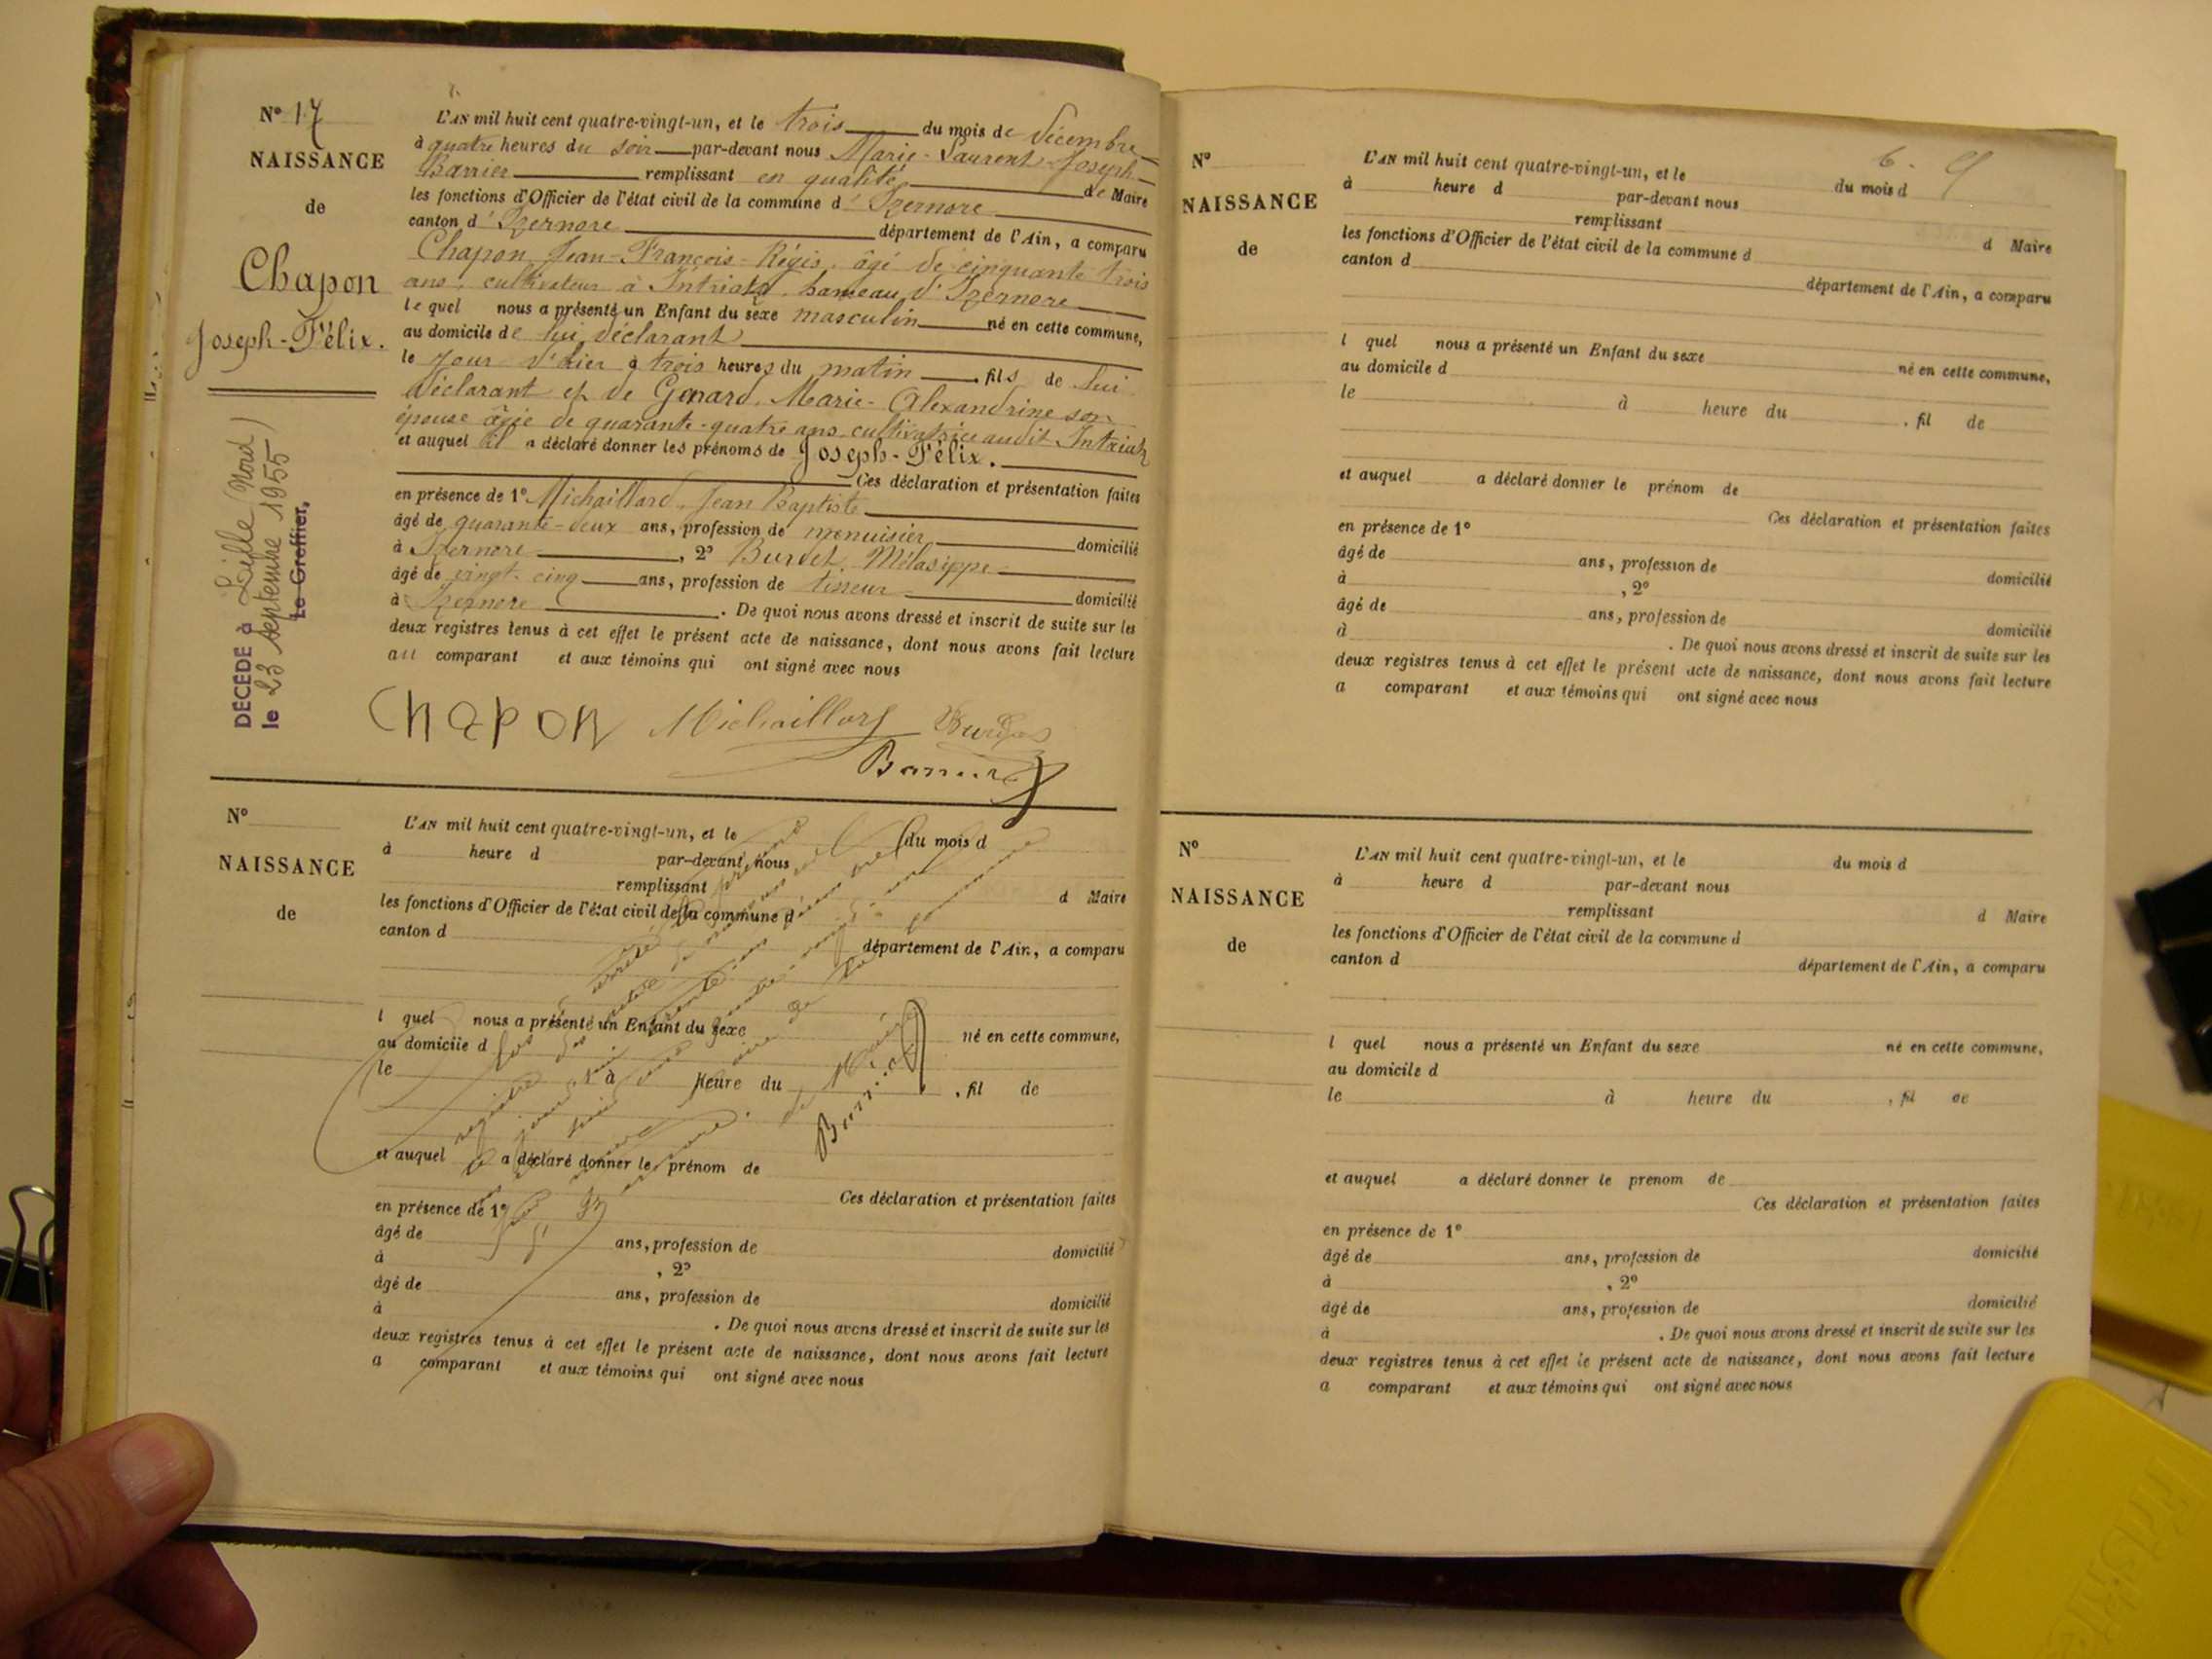 Nº 17
NAISSANCE
de
Chapon
Joseph-Félix.
DÉCÉDÉ à Lille (Nord)
le 23 septembre 1955
Le Greffier,
L'AN mil huit cent quatre-vingt-un, et le trois du mois de Décembre
à quatre heures du soir par-devant nous Marie-Laurent-Joseph
Barrier remplissant en qualité de Maire
les fonctions d'Officier de l'état civil de la commune d'Izernore
canton d'Izernore département de l'Ain, a comparu
Chapon Jean-François-Régis, âgé de cinquante trois
ans, cultivateur à Intriat, hameau d'Izernore
lequel nous a présenté un Enfant du sexe masculin né en cette commune,
au domicile de lui déclarant
le jour d'hier à trois heures du matin, fils de lui
déclarant et de Génard, Marie-Alexandrine son
épouse âgée de quarante-quatre ans, cultivatrice audit Intriat
et auquel il a déclaré donner les prénoms de Joseph-Félix.
Ces déclaration et présentation faites
en présence de 1º Michaillard, Jean Baptiste
âgé de quarante-deux ans, profession de menuisier domicilié
à Izernore, 2º Burdet, Mélasippe
âgé de vingt-cinq ans, profession de tisseur domicilié
à Izernore. De quoi nous avons dressé et inscrit de suite sur les
deux registres tenus à cet effet le présent acte de naissance, dont nous avons fait lecture
au comparant et aux témoins qui ont signé avec nous
CHAPON Michaillard Burdet
Barrier
Nº
NAISSANCE
de
L'AN mil huit cent quatre-vingt-un, et le du mois d
à heure d par-devant nous
remplissant d Maire
les fonctions d'Officier de l'état civil de la commune d
canton d département de l'Ain, a comparu
l quel nous a présenté un Enfant du sexe né en cette commune,
au domicile d
le à heure du , fil de
et auquel a déclaré donner le prénom de
Ces déclaration et présentation faites
en présence de 1º
âgé de ans, profession de domicilié
à , 2º
âgé de ans, profession de domicilié
à . De quoi nous avons dressé et inscrit de suite sur les
deux registres tenus à cet effet le présent acte de naissance, dont nous avons fait lecture
a comparant et aux témoins qui ont signé avec nous
Barrier
6.
Nº
NAISSANCE
de
L'AN mil huit cent quatre-vingt-un, et le du mois d
à heure d par-devant nous
remplissant d Maire
les fonctions d'Officier de l'état civil de la commune d
canton d département de l'Ain, a comparu
l quel nous a présenté un Enfant du sexe né en cette commune,
au domicile d
le à heure du , fil de
et auquel a déclaré donner le prénom de
Ces déclaration et présentation faites
en présence de 1º
âgé de ans, profession de domicilié
à , 2º
âgé de ans, profession de domicilié
à . De quoi nous avons dressé et inscrit de suite sur les
deux registres tenus à cet effet le présent acte de naissance, dont nous avons fait lecture
a comparant et aux témoins qui ont signé avec nous
Nº
NAISSANCE
de
L'AN mil huit cent quatre-vingt-un, et le du mois d
à heure d par-devant nous
remplissant d Maire
les fonctions d'Officier de l'état civil de la commune d
canton d département de l'Ain, a comparu
l quel nous a présenté un Enfant du sexe né en cette commune,
au domicile d
le à heure du , fil de
et auquel a déclaré donner le prenom de
Ces déclaration et présentation faites
en présence de 1º
âgé de ans, profession de domicilié
à , 2º
âgé de ans, profession de domicilié
à . De quoi nous avons dressé et inscrit de suite sur les
deux registres tenus à cet effet le présent acte de naissance, dont nous avons fait lecture
a comparant et aux témoins qui ont signé avec nous